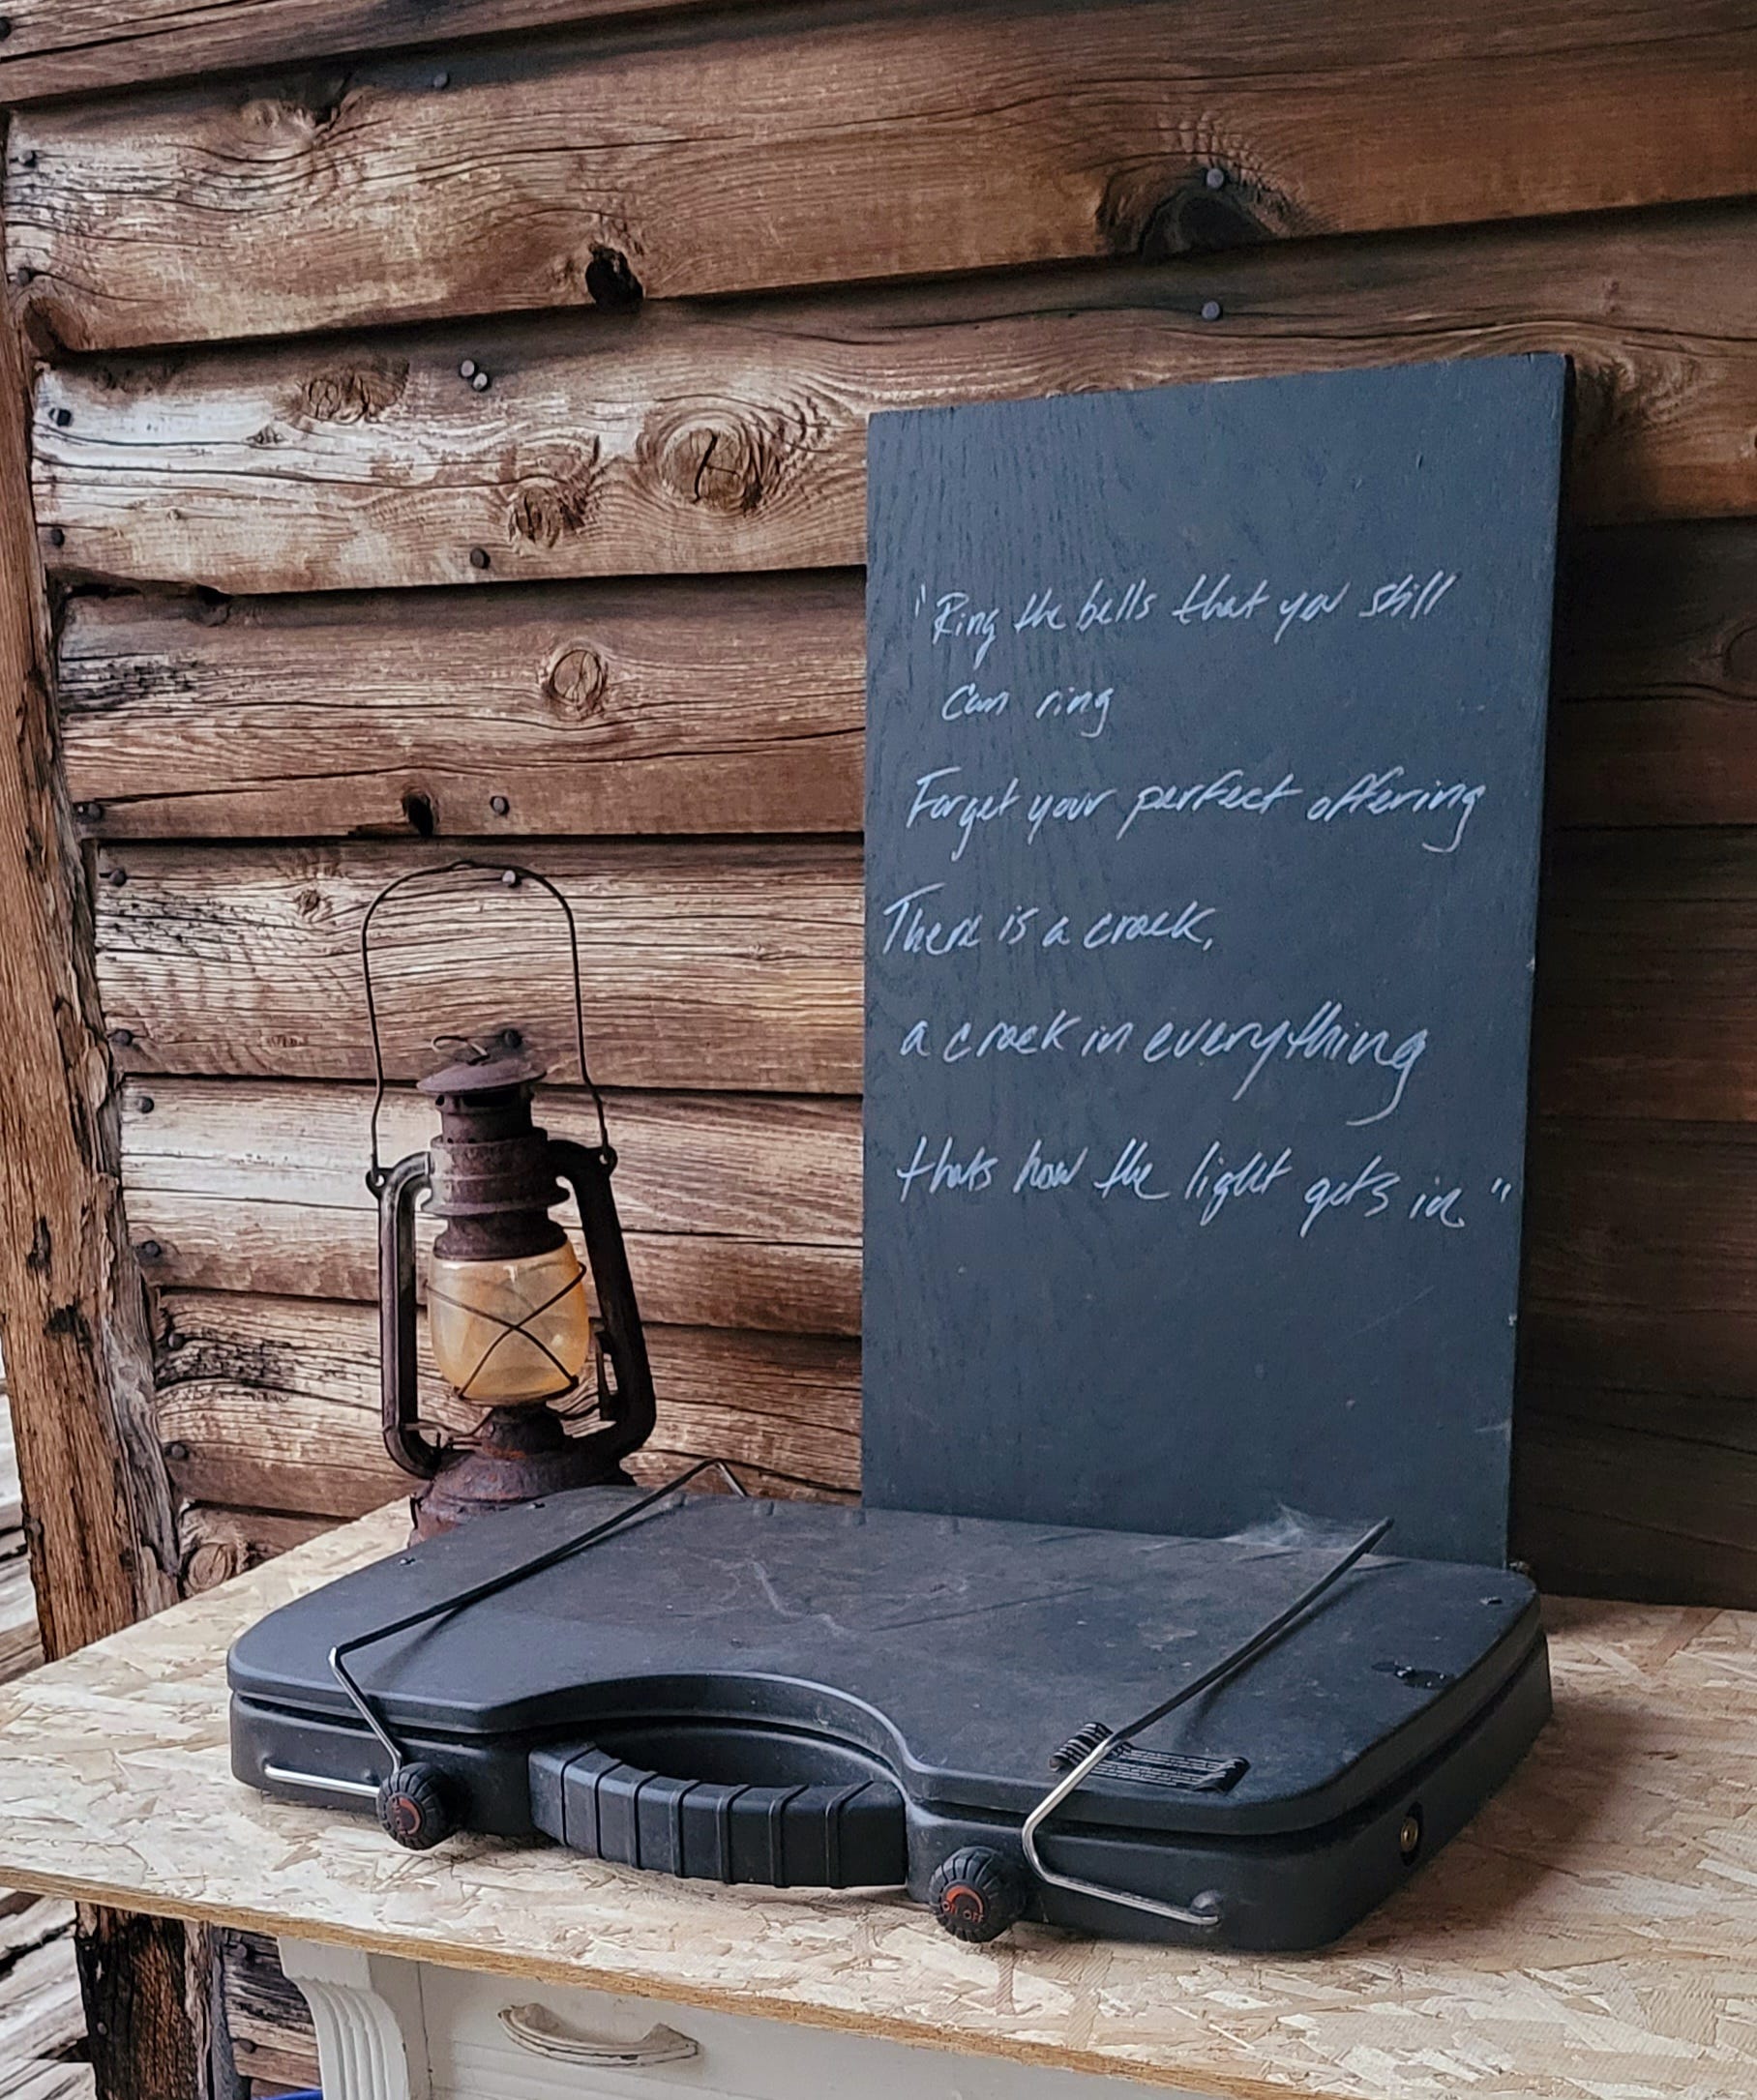 "Ring the bells that you still
can ring
Forget your perfect offering
There is a crack,
a crack in everything
thats how the light gets in"
ON OFF